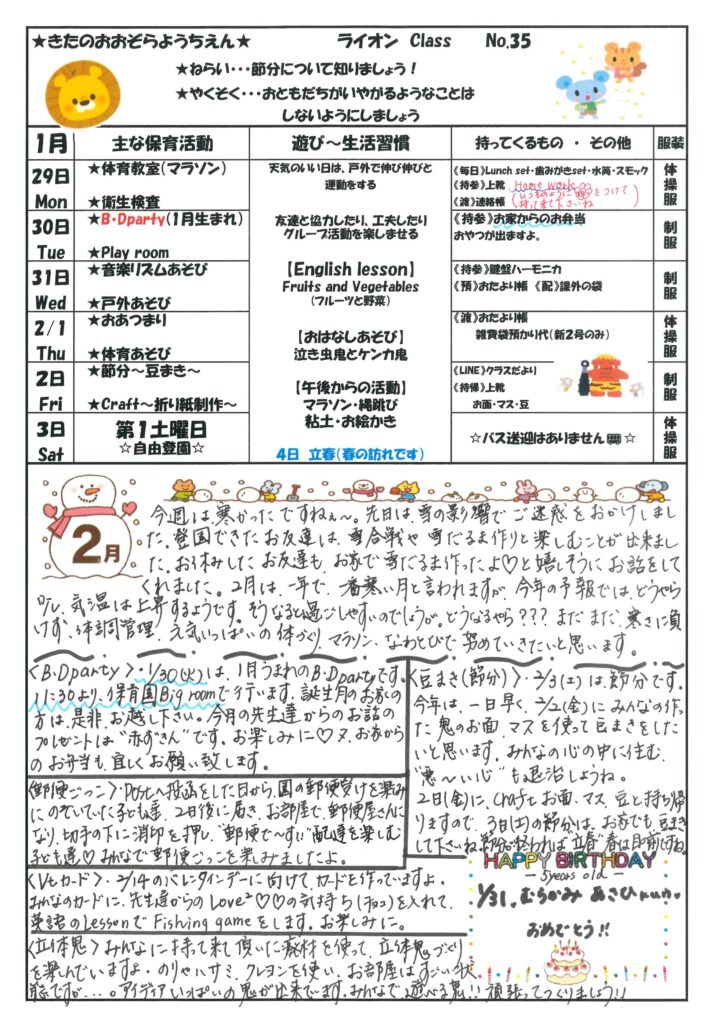 ★きたのおおぞらようちえん★ ライオン Class No.35
★ねらい・・・節分について知りましょう！
★やくそく・・・おともだちがいやがるようなことは
しないようにしましょう
1月 主な保育活動 遊び～生活習慣 持ってくるもの ・ その他 服装
29日 Mon
★体育教室(マラソン)
★衛生検査
天気のいい日は、戸外で伸び伸びと
運動をする
《毎日》Lunch set・歯みがきset・水筒・スモック
《持参》上靴 Home work
《渡》連絡帳 (いつものように を つけて
持って来て下さいね)
体操服
30日 Tue
★B・Dparty(1月生まれ)
★Play room
友達と協力したり、工夫したり
グループ活動を楽しませる
《持参》お家からのお弁当
おやつが出ますよ。
制服
31日 Wed
★音楽リズムあそび
★戸外あそび
【English lesson】
Fruits and Vegetables
(フルーツと野菜)
《持参》鍵盤ハーモニカ
《預》おたより帳 《配》課外の袋
制服
2/1 Thu
★おあつまり
★体育あそび
【おはなしあそび】
泣き虫鬼とケンカ鬼
《渡》おたより帳
雑費袋預かり代(新2号のみ)
体操服
2日 Fri
★節分～豆まき～
★Craft～折り紙制作～
【午後からの活動】
マラソン・縄跳び
粘土・お絵かき
《LINE》クラスだより
《持帰》上靴
お面・マス・豆
制服
3日 Sat
第1土曜日
☆自由登園☆
4日 立春(春の訪れです)
☆バス送迎はありません ☆
体操服
2月
今週は、寒かったですねぇ～。先日は、雪の影響で ご迷惑を おかけしまし
た。登園できた お友達は、雪合戦や 雪だるま作りと楽しむことが 出来まし
た。お休みした お友達も、お家で 雪だるま 作ったよ♡と 嬉しそうに お話をして
くれました。2月は、一年で、一番寒い月と言われますが、今年の予報では、どうやら
気温は 上昇するようです。そうなると過ごしやすいのでしょうが。どうなるやら??? まだ まだ、寒さに負
けず、体調管理、元気いっぱいの体づくり、マラソン・なわとびで 努めていきたいと思います。
〈B・Dparty〉・1/30(火)は、1月うまれのB・Dpartyです。
11:30より、保育園Big roomで行います。誕生月のお家の
方は、是非、お越し下さい。今月の先生達からのお話の
プレゼントは“赤ずきん”です。お楽しみに♡又、お家から
のお弁当も、宜しくお願い致します。
〈豆まき(節分)〉・2/3(土)は節分です。
今年は、一日早く、2/2(金)に みんなの作っ
た 鬼のお面、マスを使って 豆まきをした
いと思います。みんなの心の中に住む、
“悪～い心”も退治しようね。
2日(金)に、Craft お面、マス、豆と持ち帰
りますので、3日(土)の節分は、お家でも、豆まき
して下さいね。節分が終われば“立春”春は目前ですね。
〈郵便ごっこ〉・Postへ投函をした日から、園の郵便受けを楽しみ
にのぞいていた子ども達、2日後に届き、お部屋で、郵便屋さんに
なり、切手の下に 消印を押し、“郵便で～す!!”配達を楽しむ
子ども達♡みんなで 郵便ごっこを楽しみましたよ。
〈Vtカード〉・2/14のバレンタインデーに向けて、カードを作っていますよ。
みんなのカードに、先生達からのLove²♡♡の気持ち(チョコ)を入れて、
英語のLessonで Fishing gameをします。お楽しみに。
〈立体鬼〉みんなに持って来て頂いた廃材を使って、立体鬼づくり
を楽しんでいますよ・のりやハサミ、クレヨンを使い、お部屋はすごい状
態ですが…。アイディアいっぱいの鬼が出来ています。みんなで、遊べる鬼!! 頑張ってつくりましょう!!
HAPPY BIRTHDAY
－5years old－
1/31、むらかみ あさひkun。
おめでとう!!